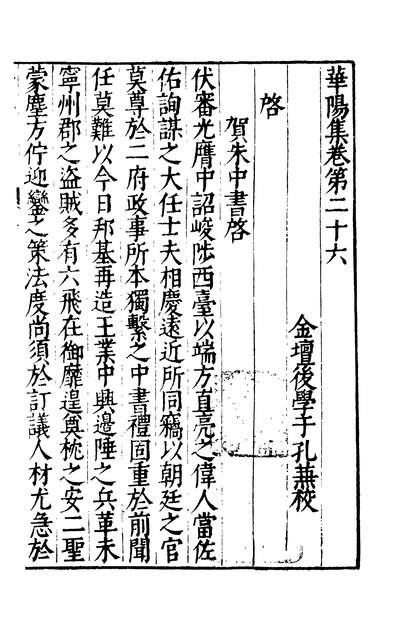 華陽集卷第二十六
金壇後學于孔兼校
啓
賀朱中書啓
伏審光膺中詔峻陟西臺以端方直亮之偉人當佐
佑詢謀之大任士夫相慶遠近所同竊以朝廷之官
莫尊於二府政事所本獨繫之中書禮固重於前聞
任莫難以今日邦基再造王業中興邊陲之兵革未
寧州郡之盜賊多有六飛在御靡遑奠枕之安二聖
蒙塵方佇迎鑾之策法度尚須於訂議人材尤急於